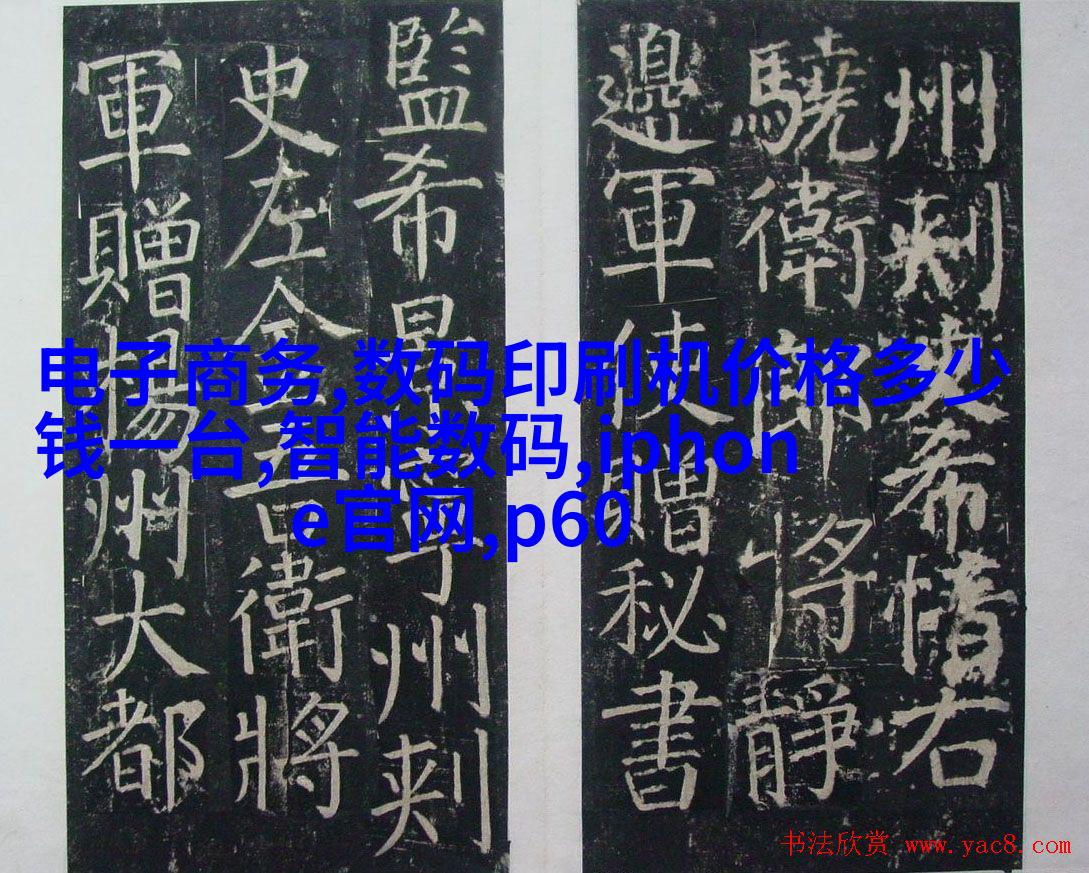 州刺史希愔右
驍衛將靜
邊軍使贈秘書
監希景州刺
史左金吾衛將
軍贈揚州大都
电子商务,数码印刷机价格多少
钱一台,智能数码,iphon
e官网,p60
书法欣赏 www.yac8.com